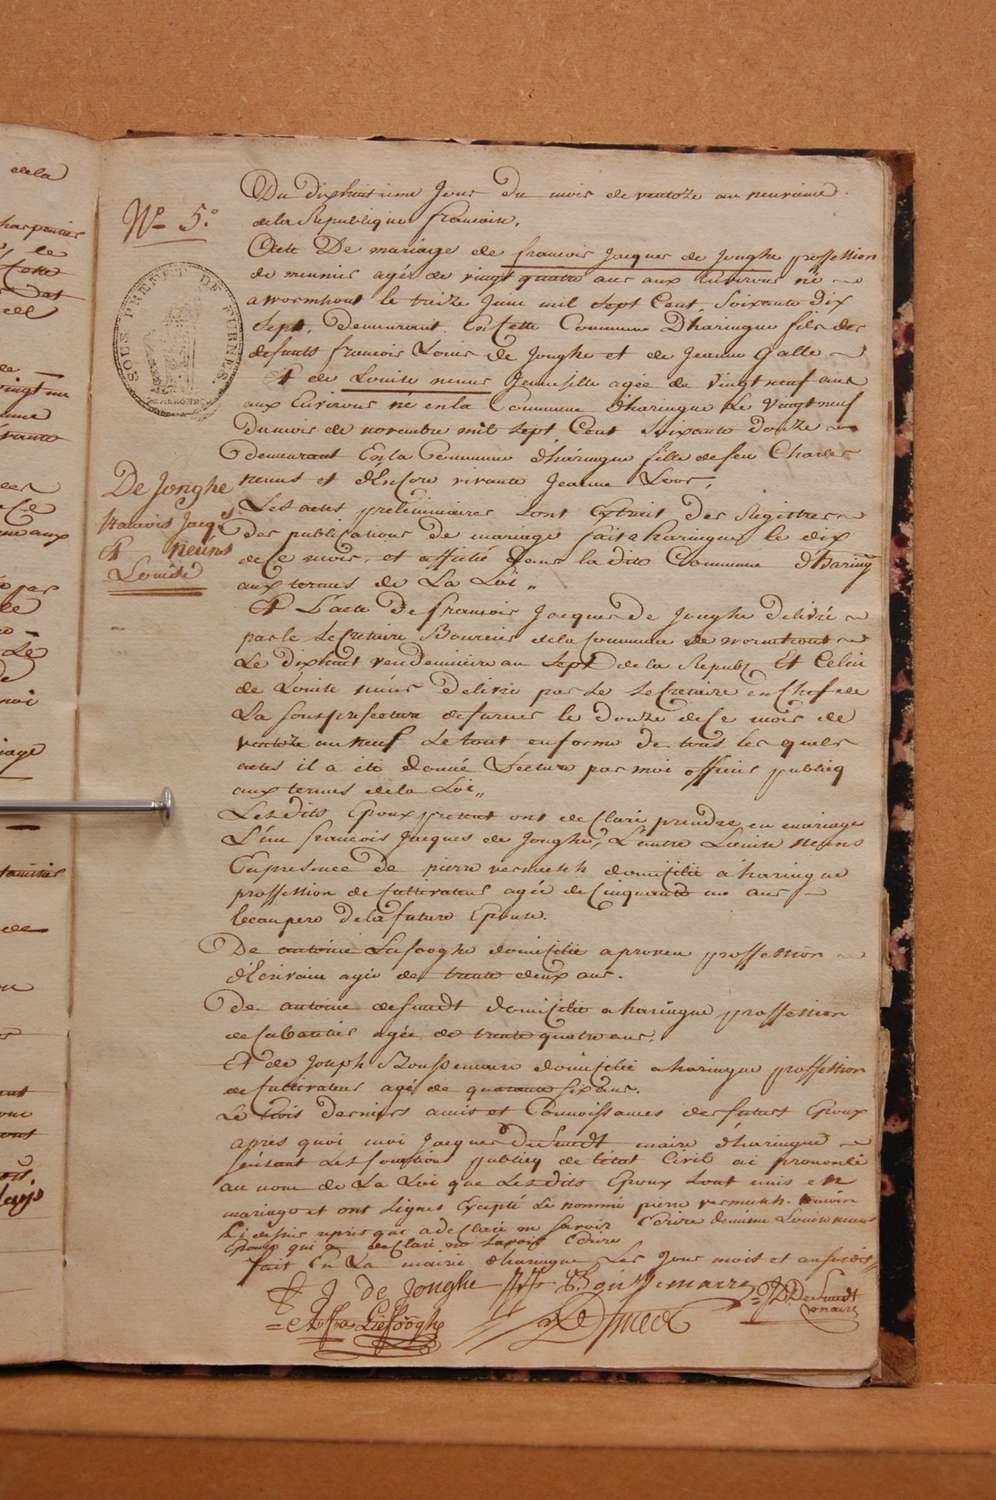 Nº 5º
SOUS PREFET DE FURNES.
De Jonghe
francois Jacqs
Et neuns
Louise
Du dixhuitieme Jour du mois de ventoze an neuvieme
dela Republique francoise,
Acte De mariage de francois Jacques de Jonghe professtion
de meunier agée de vingt quatre ans aux Environs né
a wormhout le treize Juin mil sept Cent Soixante dix
sept, demeurant En Cette Commune D'haringue fils des
defunts francois Louis de Jonghe et de Jeanne Galle
Et de Louise neuns Jeune fille agée de vingt neuf ans
aux Environs né en la Commune d'haringue le vingt neuf
du mois de novembre mil sept Cent Soixante douze
demeurant En la Commune d'haringue fille de feu Charles
neuns et d'Encore vivante Jeanne Loor,
Les actes preliminaires sont Extrait des Registres
des publications de mariage fait a haringue le dix
de Ce mois, et affiché dans la dite Commune d'haringe
aux termes de La Loi„
Et L'acte De francois Jacques de Jonghe delivré
par le secretaire de la Commune de wormhout
Le dixhuit vendemiaire an sept de la Republ Et Celui
de Louise neuns delivré par le secretaire en Chef de
La sousprefecture de furnes le douze de Ce mois de
ventoze an neuf Le tout en forme de tous les quels
actes il a été donné Lecture par moi officier publicq
aux termes de la Loi„
Lesdits Epoux present ont declaré prendre en mariage
L'un francois Jacques de Jonghe, L'autre Louise neuns
En presence de pierre vermersh domicilié a haringue
professtion de Cultivateur agée de Cinquante un ans
beaupere dela future Epouse.
De antoine Liefooghe domicilié a proven professtion
d'Ecrivain agée de trente deux ans.
De antoine desmedt domicilié a haringue professtion
de Cabaretier agée de trente quatre ans,
Et de Joseph Boussemaere domicilié a haringue professtion
de Cultivateur agé de quarante six ans.
Le trois derniers amis et Connoissances des futurs Epoux
apres quoi moi Jacques DeSmedt maire d'haringue
faisant Les fonctions publicq de l'état Civil ai prononcé
au nom de La Loi que Lesdits Epoux sont unis en
mariage et ont signés Excepté Le nommé pierre vermersh temoin
ci dessus apres que a declaré ne savoir Ecrire de meme Louise neuns
Epouse qui a declaré ne savoir Ecrire
fait En La mairie d'haringue Les Jour mois et an susdits„
F J De Jonghe J Boussemaere J DeSmedt
maire
A Liefooghe A DSmedt